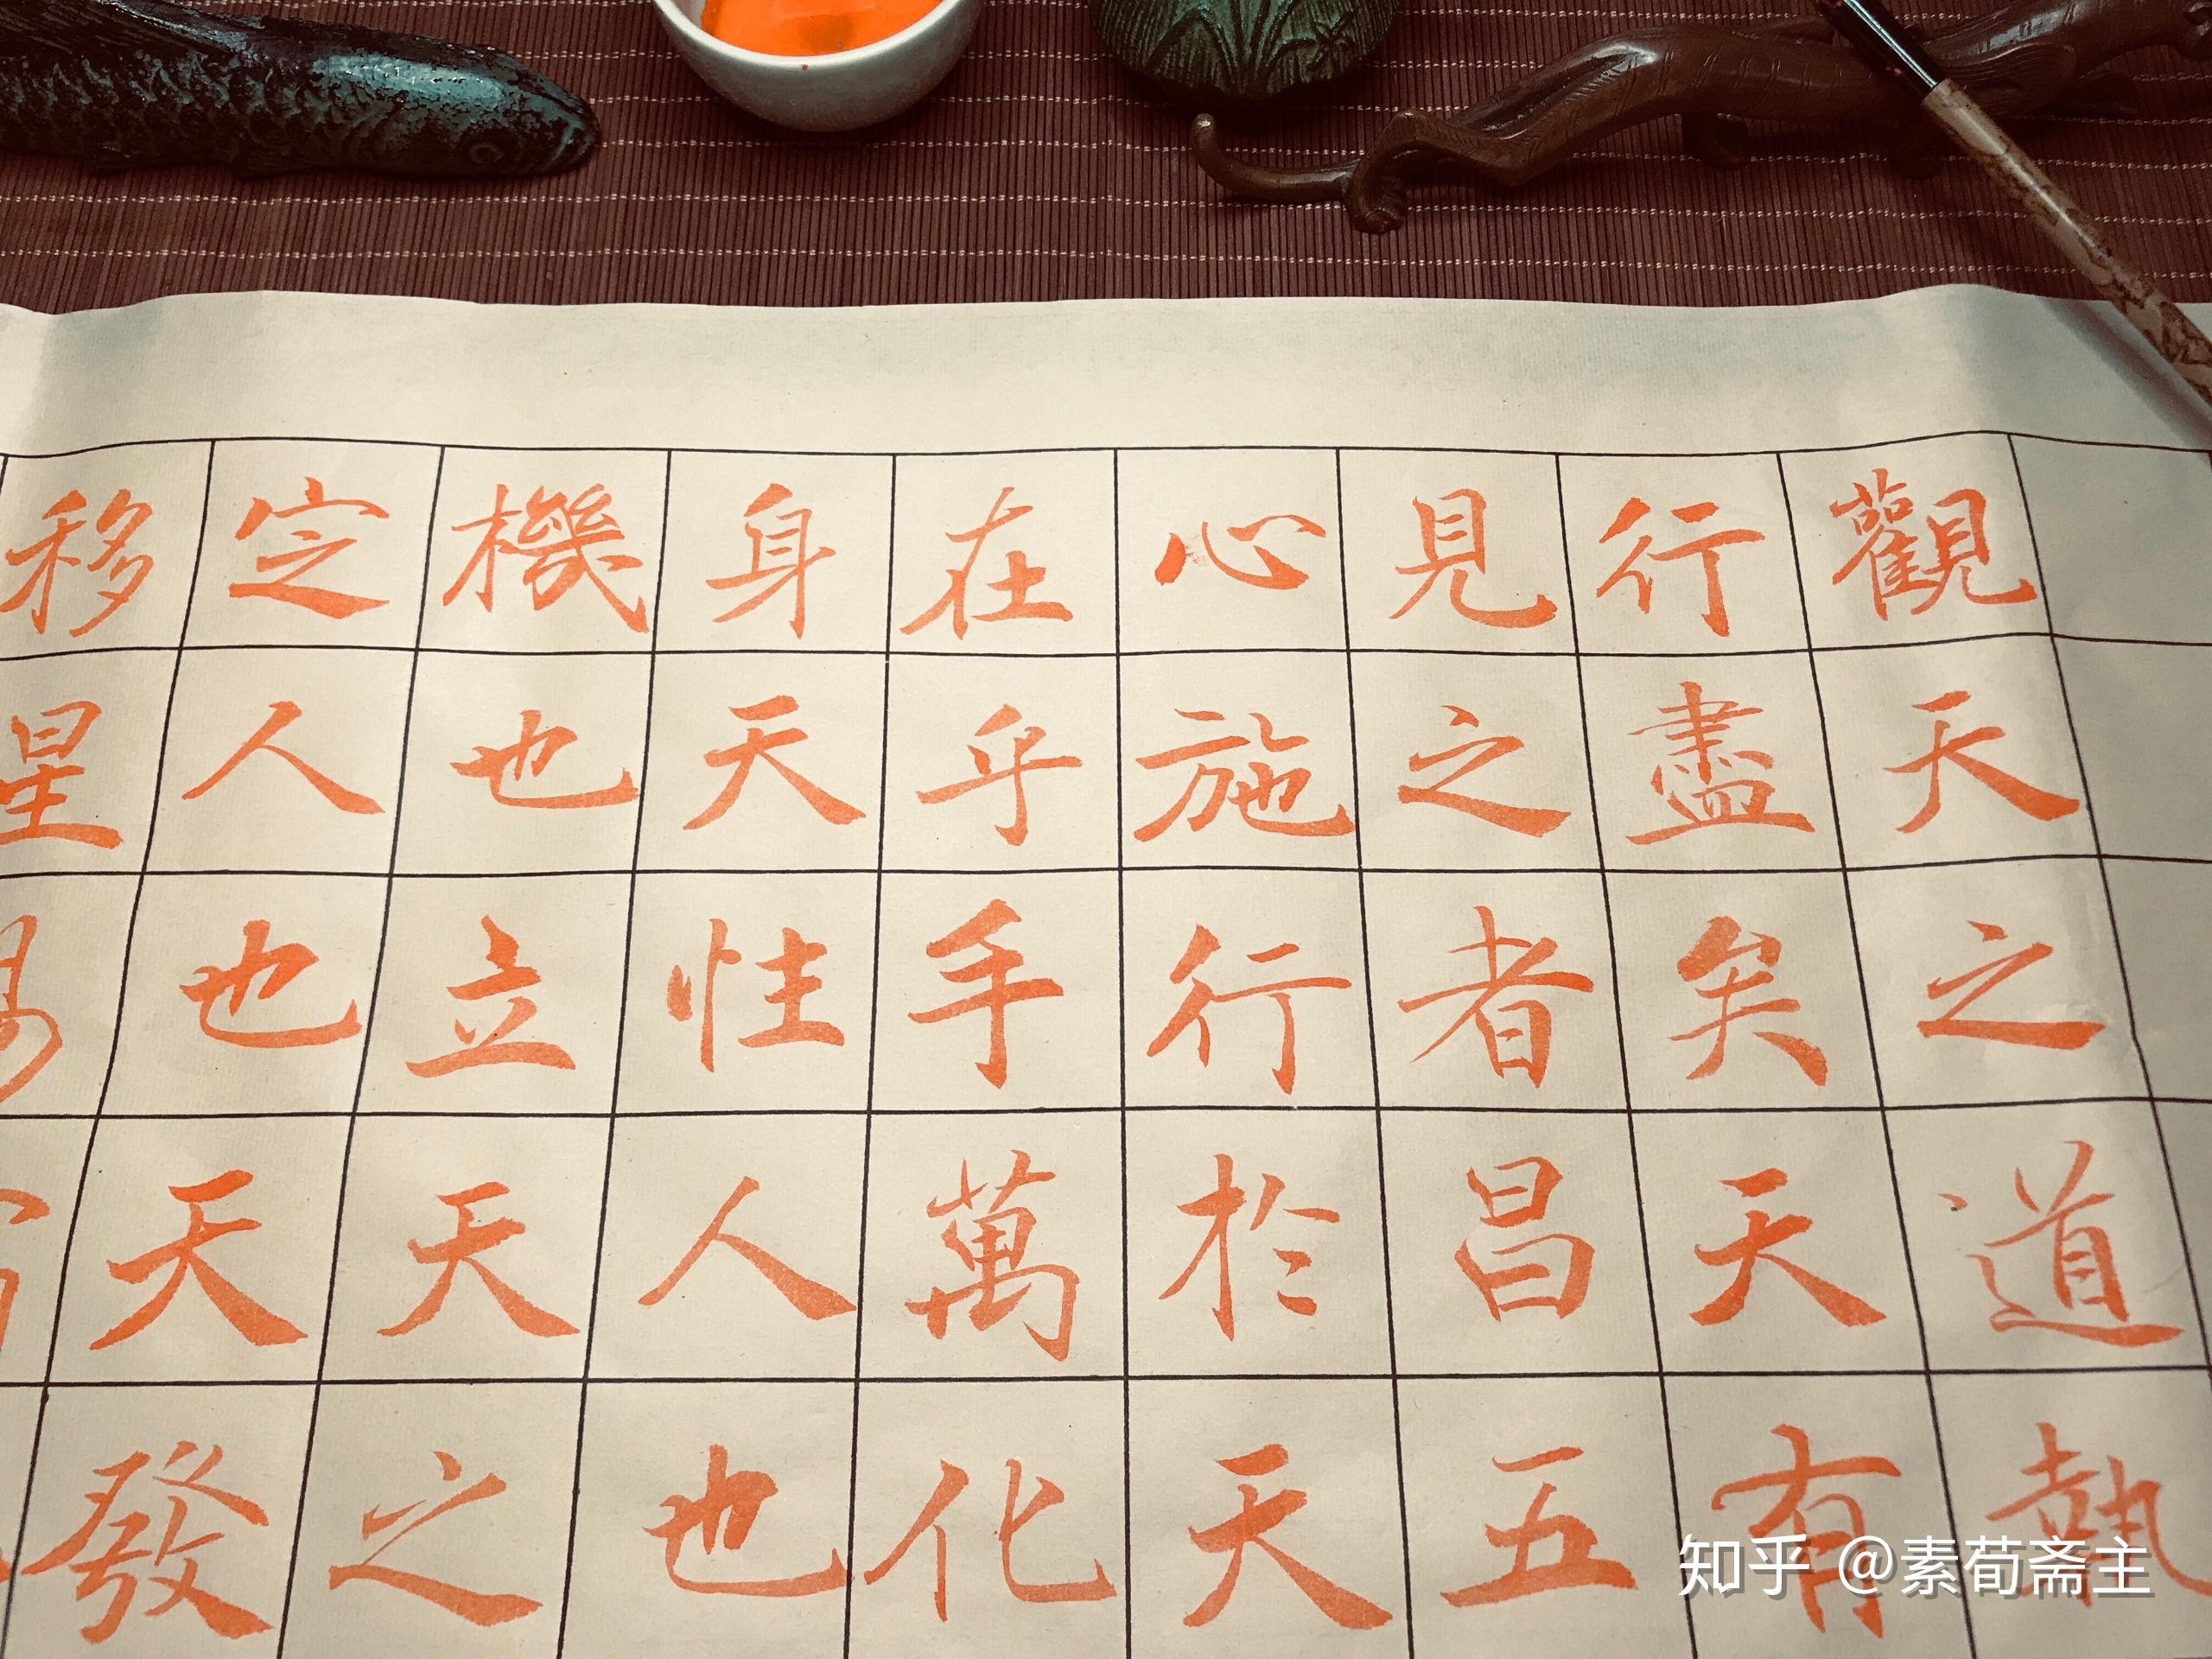 觀天之道執
行盡矣天有
見之者昌五
心施行於天
在乎手萬化
身天性人也
機也立天之
定人也天發
移星
知乎 @素荀斋主